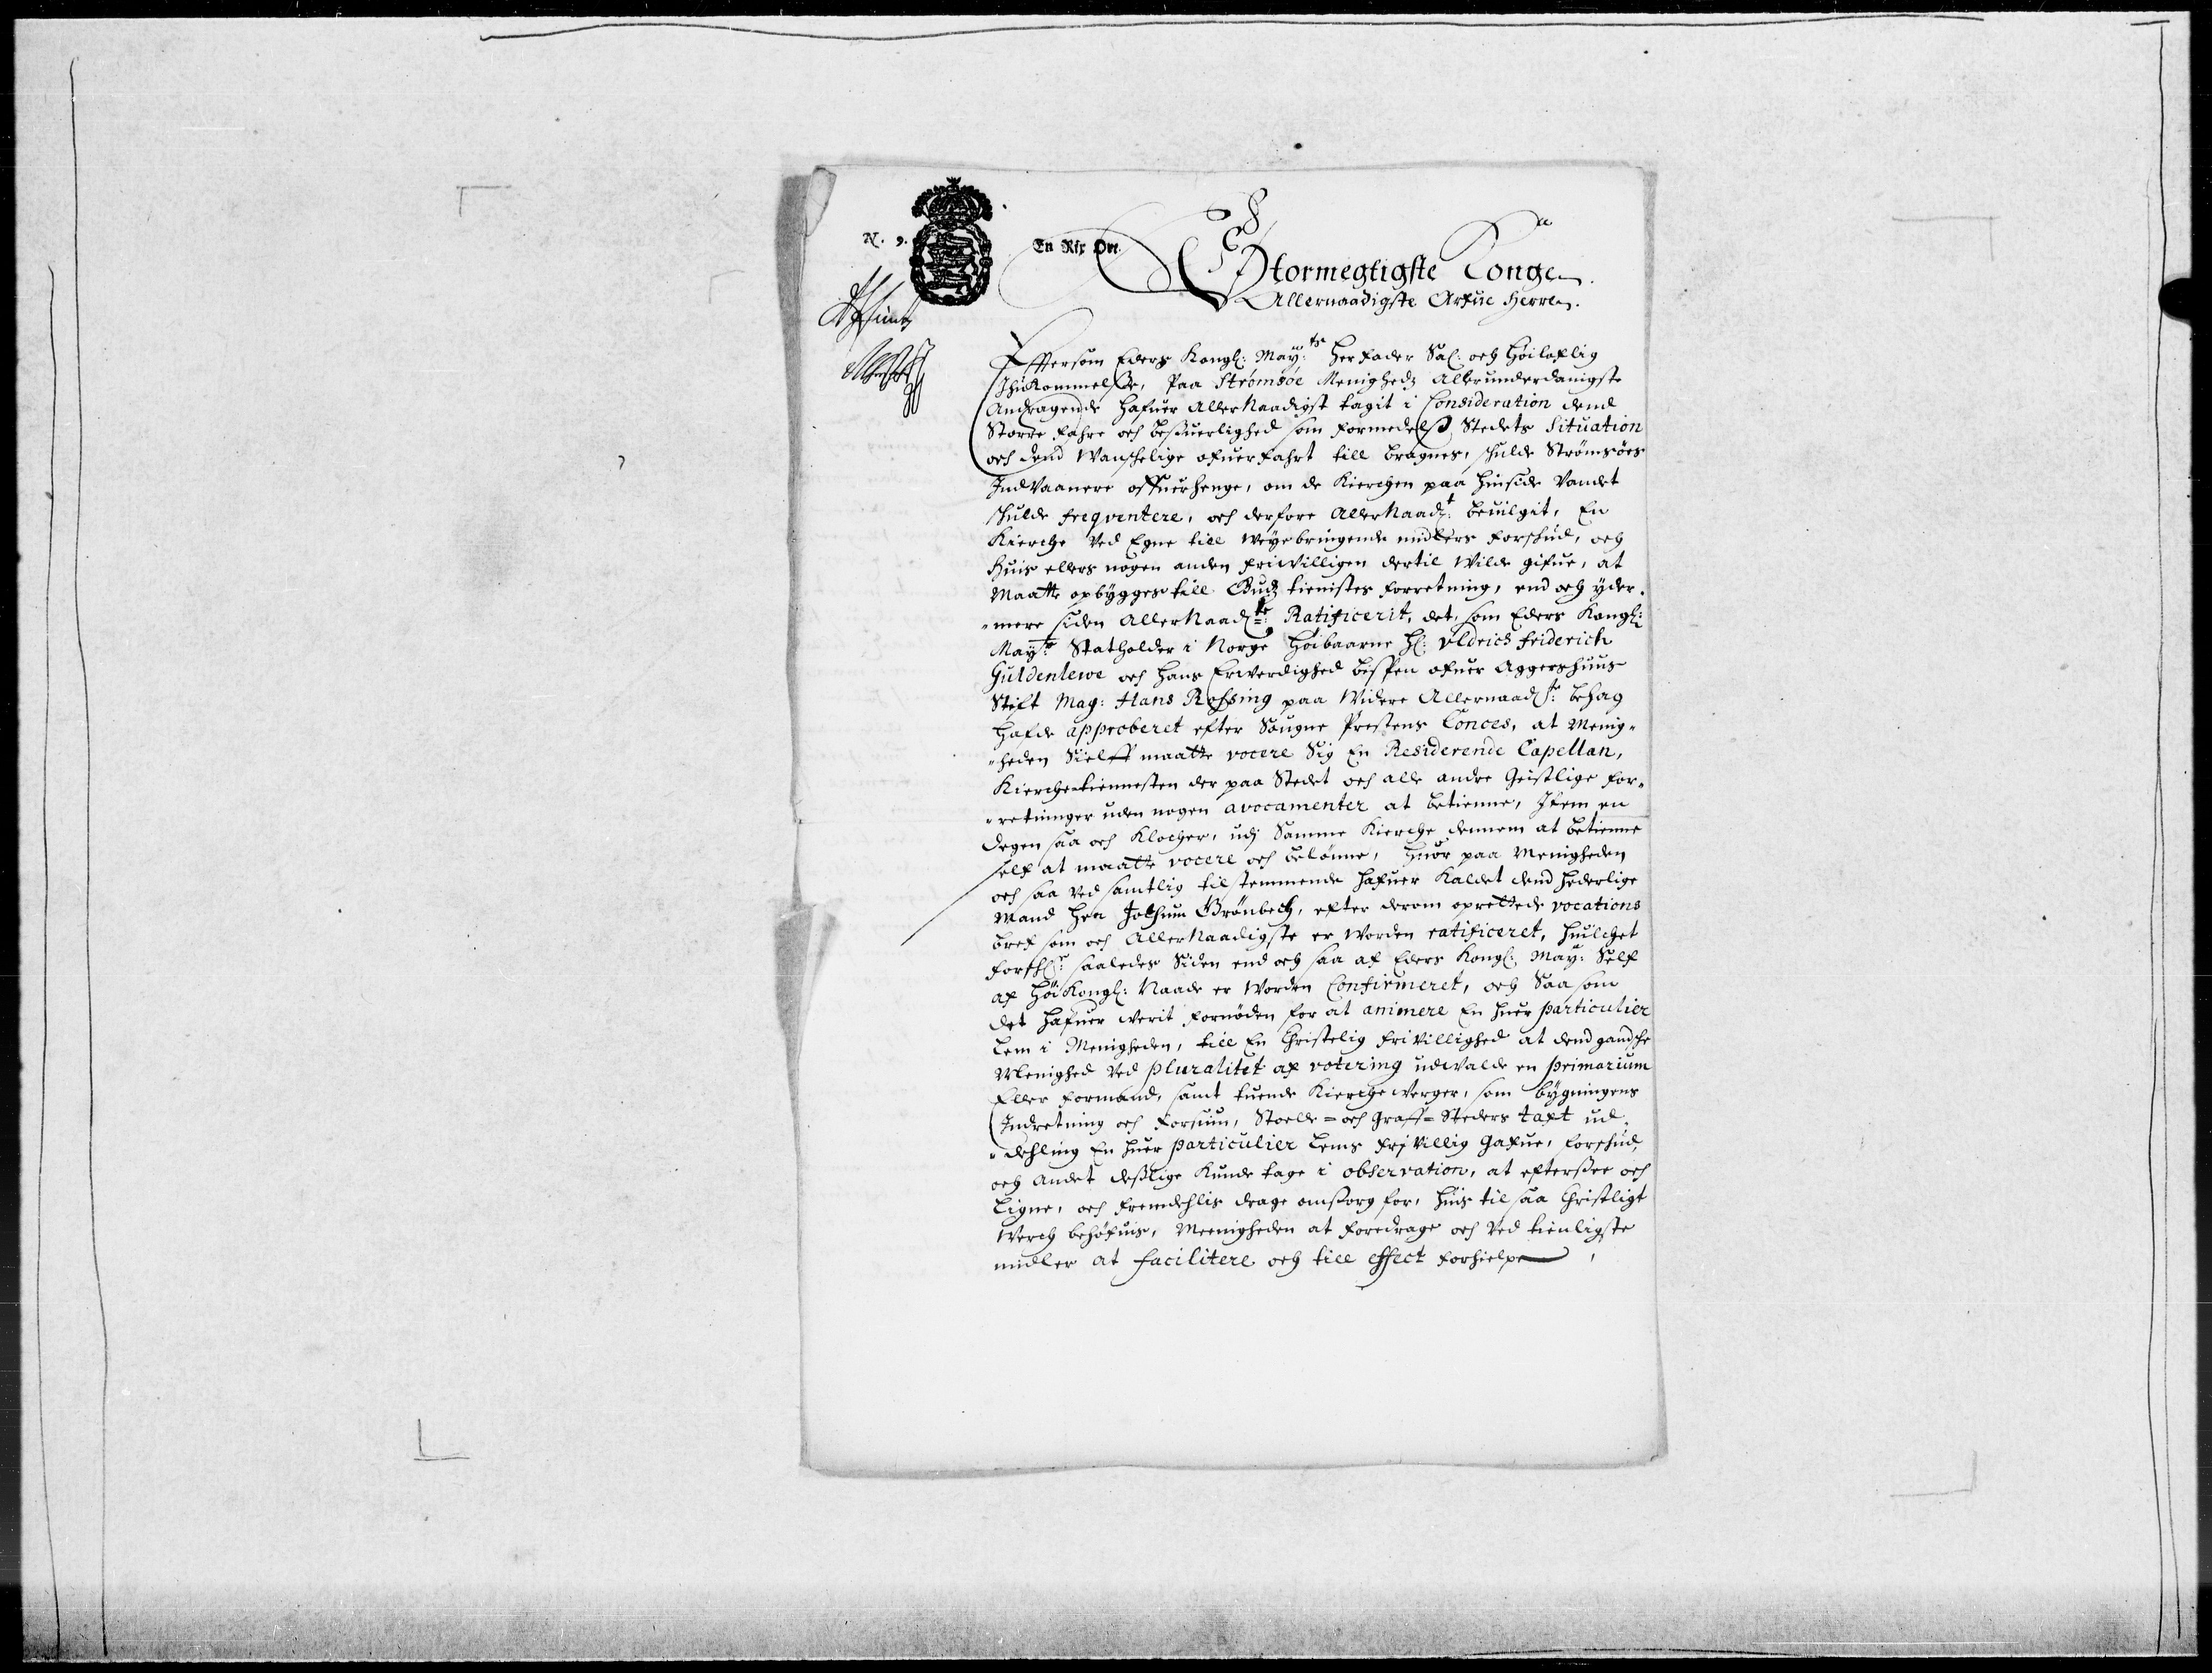 N. 9.
En Rix Ort.
Stormegtigste Konge
Allernaadigste Arfue Herre.
Effersom Eders Kongl: May:ts Her Fader Sal: och Høiloflig
Ihukommelse, Paa Strømsøe Menigheds Allerunderdanigste
Andragende hafuer AllerNaadigst tagit i Consideration dend
Storre fahre och besuerlighed som formedelst Stedets Situation
och dend Wanschelige ofuerfahrt till Bragnes, schulde Strømsøes
IndVaanere offuerhenge, om de Kierchen paa hinside Vandet
schulde freqventere, och derfore AllerNaadt: beuilgit, En
Kierche Ved Egne till weye bringende midlers forskud, och
huis ellers nogen anden friwilligen dertil Wilde gifue, at
Maatte opbygges till Gudz tienistes forretning, end och yder-
mere siden AllerNaadste: Ratificerit, det, som Eders Kongl:
Mayts Statholder i Norge Høibaarne H: Uldrich friderich
Guldenlewe och Hans Erwerdighed bispen ofuer Aggershuus
Stift Mag: Hans Rosing paa Widere Allernaadste: behag
hafde approberet efter Sougne Prestens Conces, at Menig-
heden Sielff maatte vocere Sig En Residerende Capellan,
Kirchetiennesten der paa Stedet och alle andre Geistlige for-
retninger uden nogen avocamenter at betienne, Item en
degen saa och Klocher, udj Samme Kierche dennem at betienne
self at maatte vocere och belønne, huor paa Menigheden
och saa ved samtlig tilstemmende hafuer Kaldet dend hederlige
Mand Her Jochum Grønbech, efter derom oprettede vocations
bref som och AllerNaadigste er Worden ratificeret, huilchet
saaledes Siden end och saa af Eders Kongl: May: Self
af Høi Kongl: Naade er Worden Confirmeret, och Saa som
det hafuer Werit fornøden for at animere En huer particulier
Lem i Menigheden, till En Christelig friVillighed at dend gandsche
Menighed Ved pluralitet af votering udwalde en primarium
Eller formand, samt tuende Kierchewerger, som bygningens
Indretning och forsiun, Stoele= och Graff= Steders taxt ud-
dehling En huer particulier Lems friVillig Gafue, forskud,
och andet deslige Kunde tage i observation, at eftersee och
Ligne, och fremdehlis drage omsorg for, huis til saa Christligt
Werch behøfuis, Meenigheden at foredrage och Ved tienligste
midler at facilitere och till effect forhielpe